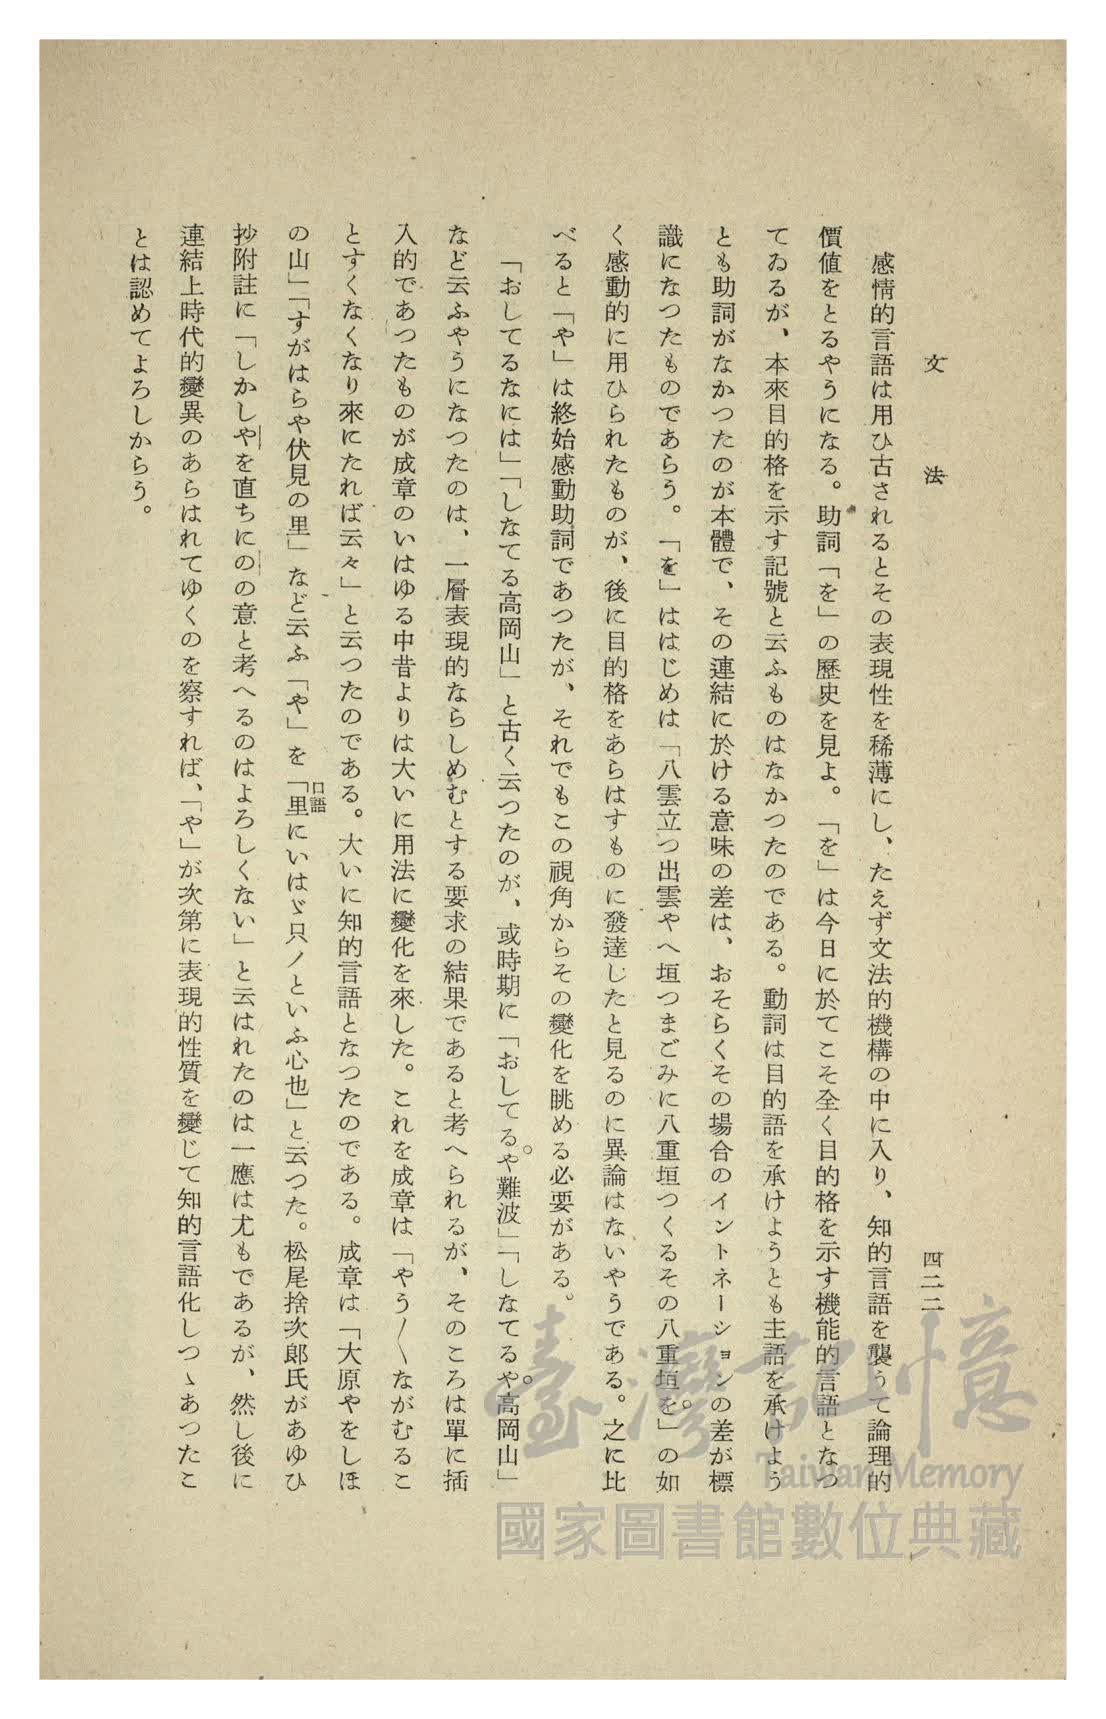 文法
四二二
感情的言語は用ひ古されるとその表現性を稀薄にし、たえず文法的機構の中に入り、知的言語を襲うて論理的
價値をとるやうになる。助詞「を」の歷史を見よ。「を」は今日に於てこそ全く目的格を示す機能的言語となつ
てゐるが、本來目的格を示す記號と云ふものはなかつたのである。動詞は目的語を承けようとも主語を承けよう
とも助詞がなかつたのが本體で、その連結に於ける意味の差は、おそらくその場合のイントネーションの差が標
識になつたものであらう。「を」ははじめは「八雲立つ出雲やへ垣つまごみに八重垣つくるその八重垣を」の如
く感動的に用ひられたものが、後に目的格をあらはすものに發達したと見るのに異論はないやうである。之に比
べると「や」は終始感動助詞であつたが、それでもこの視角からその變化を眺める必要がある。
「おしてるなには」「しなてる高岡山」と古く云つたのが、或時期に「おしてるや難波」「しなてるや高岡山」
など云ふやうになつたのは、一層表現的ならしめむとする要求の結果であると考へられるが、そのころは單に插
入的であつたものが成章のいはゆる中昔よりは大いに用法に變化を來した。これを成章は「やう〱ながむるこ
とすくなくなり來にたれば云々」と云つたのである。大いに知的言語となつたのである。成章は「大原やをしほ
の山」「すがはらや伏見の里」など云ふ「や」を「里にいはゞ只ノといふ心也」と云つた。松尾捨次郎氏があゆひ
口語
抄附註に「しかしやを直ちにのの意と考へるのはよろしくない」と云はれたのは一應は尤もであるが、然し後に
連結上時代的變異のあらはれてゆくのを察すれば、「や」が次第に表現的性質を變じて知的言語化しつゝあつたこ
とは認めてよろしからう。
臺灣記憶
Taiwan Memory
國家圖書館數位典藏